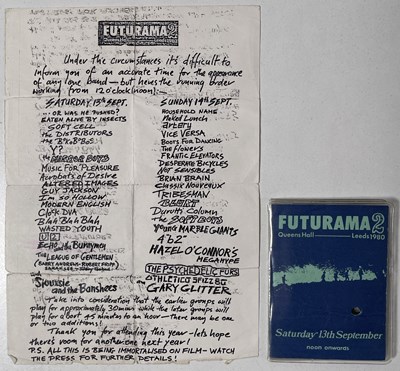 FUTURAMA 2
Queens Hall Leeds 1980
Under the circumstances it's difficult to
inform you of an accurate time for the appearance
of any one band - but here's the running order
working from 12 o'clock (noon):-
SATURDAY 13th SEPT.
... OR WAS HE PUSHED?
EATEN ALIVE BY INSECTS
SOFT CELL
the DISTRIBUTORS
Y?
the
MUSIC FOR PLEASURE
Acrobats of Desire
ALTERED IMAGES
GUY JACKSON
I'm so Hollow
MODERN ENGLISH
CLOCK DVA
Blah Blah Blah
WASTED YOUTH
U2
Echo & the Bunnymen
The LEAGUE OF GENTLEMEN
(BARRY ANDREWS-ROBERT FRIPP
Siouxsie and the Banshees
SUNDAY 14th SEPT.
HOUSEHOLD NAME
Naked Lunch
artery
VICE VERSA
BOOTS FOR DANCING
The flowers
FRANTIC ELEVATORS
DESPERATE BICYCLES
NOT SENSIBLES
BRIAN BRAIN
Classix Nouveaux
TRIBESMAN
Durutti Column
The SOFT BOYS
YOUNG MARBLE GIANTS
4"be2"
HAZEL O'CONNOR'S
MEGAHYPE
THE PSYCHEDELIC FURS
ATHLETICO SPIZZ 80
GARY GLITTER
Take into consideration that the earlier groups will
play for approximately 30 mins while the later groups will
play for about 45 minutes to an hour - There may be one
or two additions!
Thank you for attending this year - lets hope
there's room for another one next year!
P.S. ALL THIS IS BEING IMMORTALISED ON FILM - WATCH
THE PRESS FOR FURTHER DETAILS!
FUTURAMA 2
Queens Hall Leeds 1980
Saturday 13th September
noon onwards